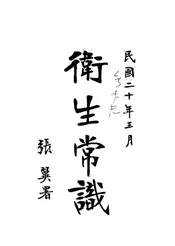 民國二十年三月
衛生常識
張翼署